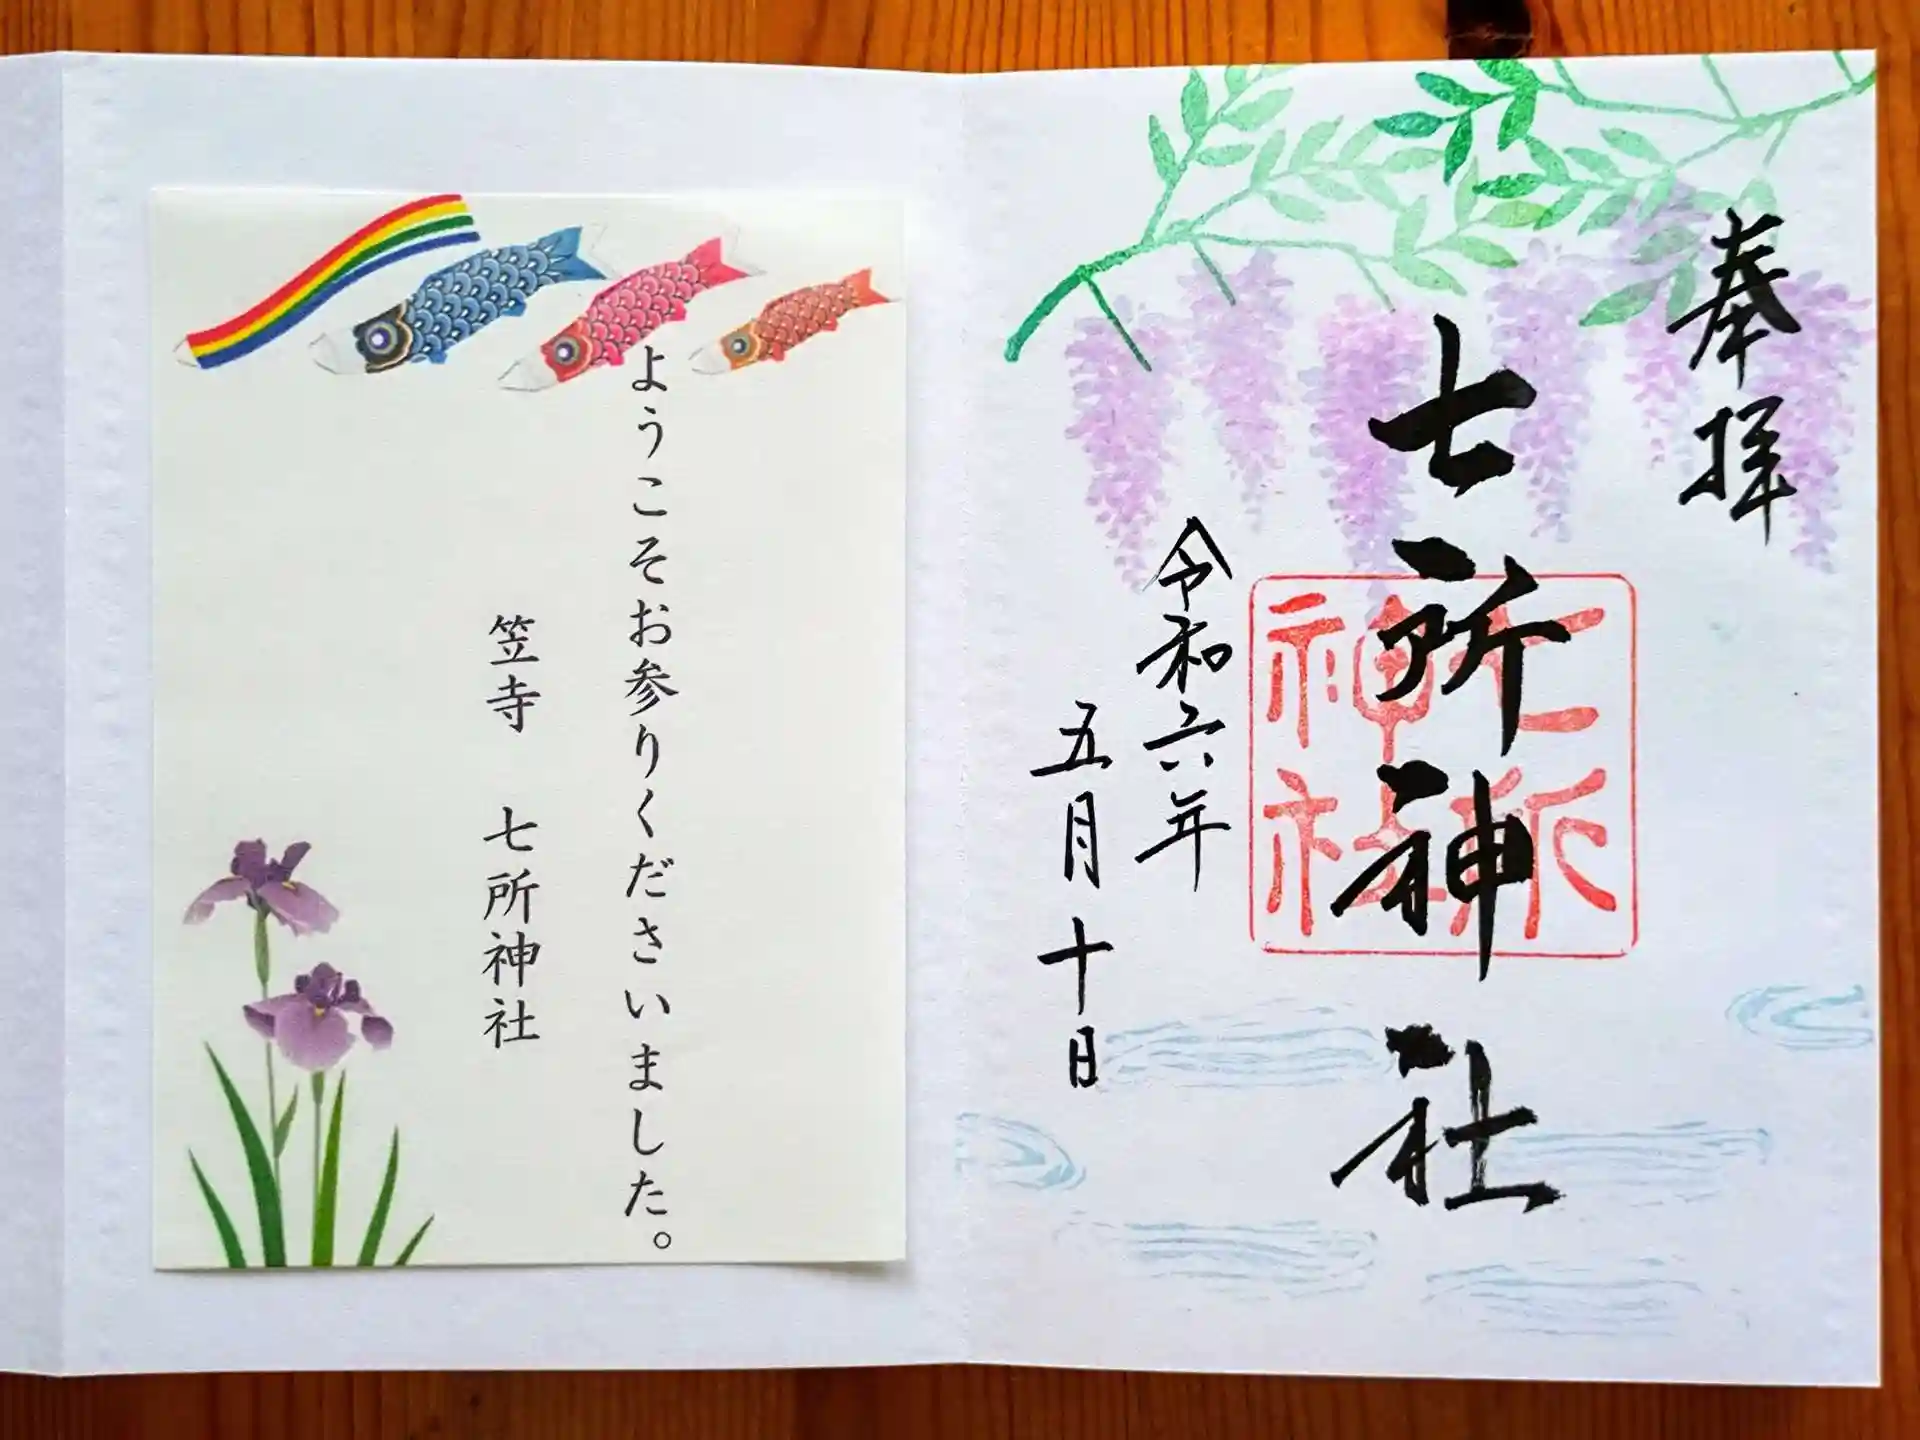 奉拝
七所神社
七所神社
令和六年
五月十日
ようこそお参りくださいました。
笠寺　七所神社